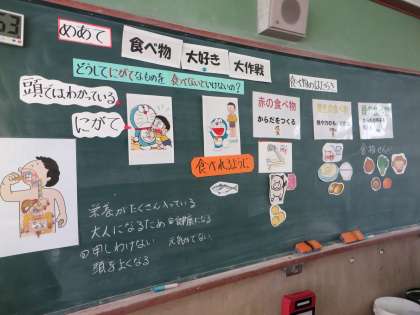 めあて
食べ物
大好き
大作戦
どうしてにがてなものを食べないといけないの？
頭ではわかっている
にがて
食べれるように
食べ物のはたらき
赤の食べ物
からだをつくる
黄色の食べ物
栄養がたくさん入っている
大人になるため
申しわけない
元気がでない
頭をよくなる